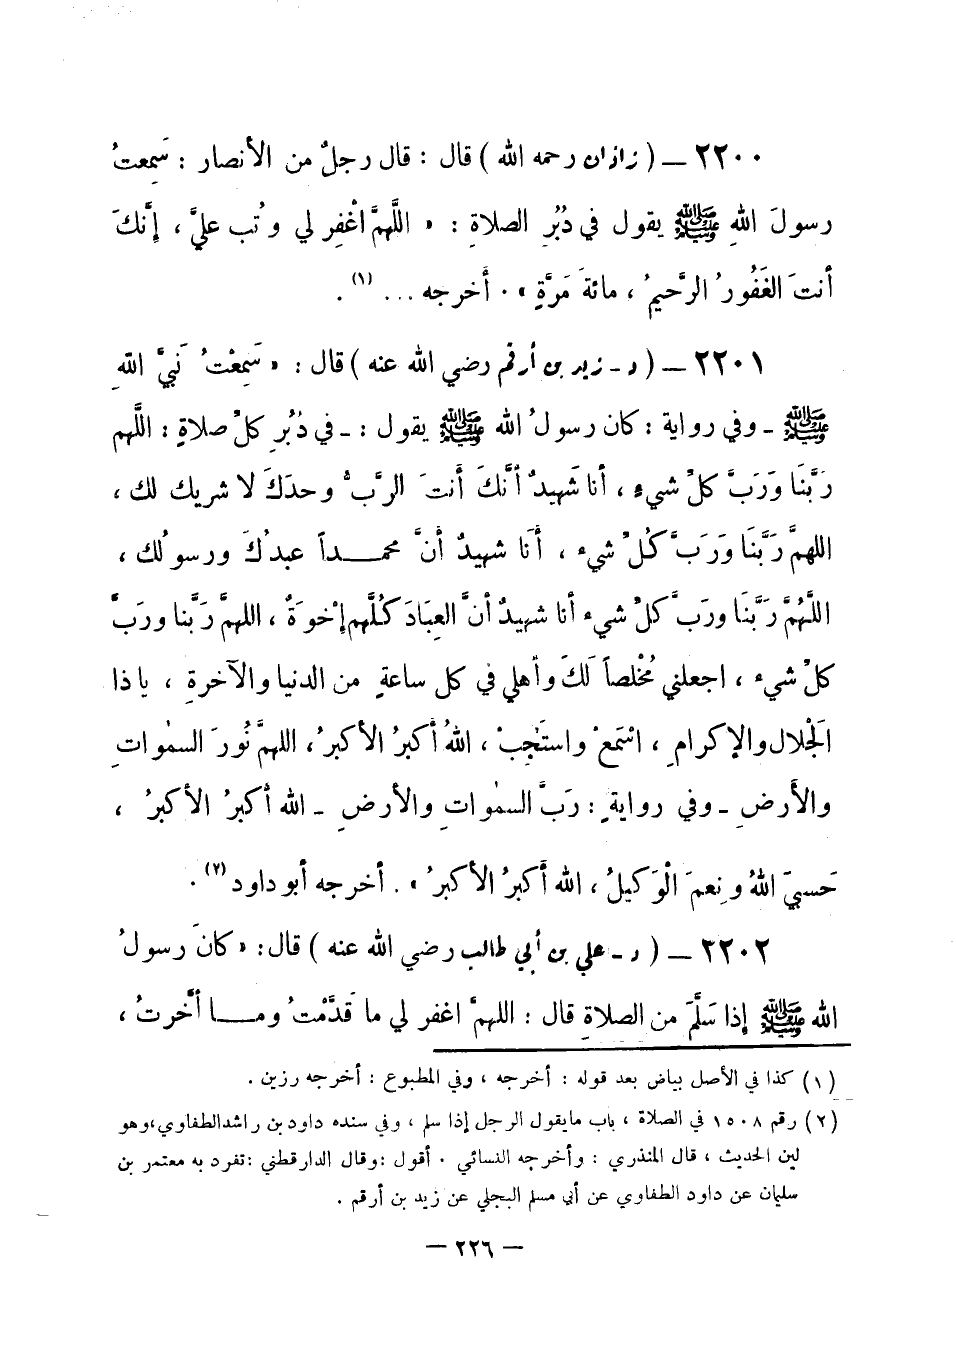 ٢٢٠٠ – ( زاذان رحمه الله ) قال : قال رجلٌ من الأنصار : سَمِعتُ
رسولَ اللهِ ﷺ يقول في دُبُرِ الصلاةِ : « اللَّهمَّ اغْفِر لي وتُب عليَّ ، إِنَّكَ
أنتَ الغَفُورُ الرَّحيمُ ، مائةَ مَرَّةٍ » . أَخرجه ... (١) .
٢٢٠١ – ( د - زيد بن أرقم رضي الله عنه ) قال : « سَمِعْتُ نَبيَّ اللهِ
ﷺ - وفي رواية : كان رسولُ الله ﷺ يقول : - في دُبُرِ كلِّ صلاةٍ : اللَّهم
رَبَّنَا وَرَبَّ كلِّ شيءٍ ، أنا شَهِيدٌ أنَّكَ أَنتَ الرَّبُّ وحدَكَ لا شريك لك ،
اللهمَّ رَبَّنَا وَرَبَّ كُلِّ شيء ، أَنَا شهيدٌ أنَّ محمــداً عبدُكَ ورسولُك ،
اللَّهُمَّ رَبَّنَا ورَبَّ كلِّ شيء أنا شهيدٌ أنَّ العِبَادَ كُلَّهم إخْوَةٌ ، اللهمَّ رَبَّنا وربَّ
كلِّ شيء ، اجعلني مُخْلصاً لَكَ وأهلي في كل ساعةٍ من الدنيا والآخرةِ ، ياذا
الجَلال والإكرامِ ، اسْمَعْ واستَجِبْ ، اللهُ أكبرُ الأكبرُ ، اللهمَّ نُورَ السمٰواتِ
والأَرضِ - وفي روايةٍ : رَبَّ السمٰواتِ والأرضِ - الله أكبرُ الأكبرُ ،
حَسبيَ اللهُ ونِعمَ الْوَكيلُ ، الله أَكبرُ الأكبرُ » . أخرجه أبو داود (٢) .
٢٢٠٢ – ( د - علي بن أبي طالب رضي الله عنه ) قال : « كانَ رسولُ
الله ﷺ إِذا سَلَّمَ من الصلاةِ قال : اللهمَّ اغفر لي ما قَدَّمْتُ ومــا أَخَّرتُ ،
(١) كذا في الأصل بياض بعد قوله : أخرجه ، وفي المطبوع : أخرجه رزين .
(٢) رقم ١٥٠٨ في الصلاة ، باب مايقول الرجل إذا سلم ، وفي سنده داود بن راشد الطفاوي ، وهو
لين الحديث ، قال المنذري : وأخرجه النسائي . أقول : وقال الدارقطني : تفرد به معتمر بن
سليمان عن داود الطفاوي عن أبي مسلم البجلي عن زيد بن أرقم .
– ٢٢٦ –